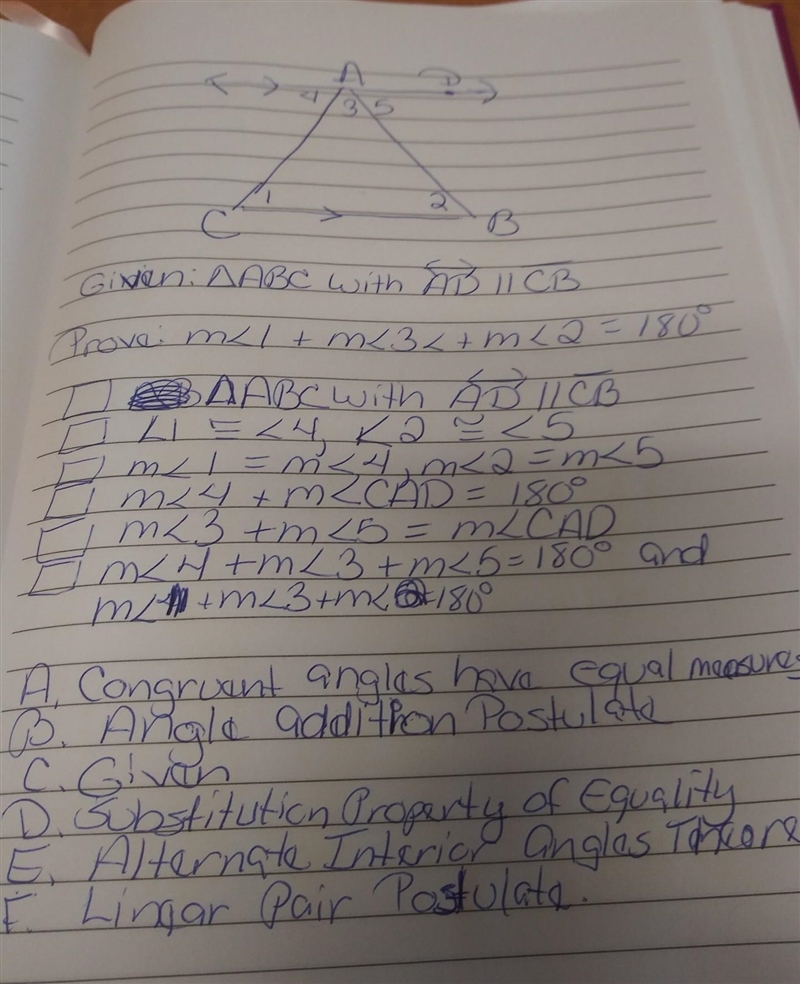 A D
4 3 5
1 2
C B
Given: ΔABC with AD || CB
Prove: m<1 + m<3< + m<2 = 180°
ΔABC with AD || CB
<1 ≅ <4, <2 ≅ <5
m<1 = m<4, m<2 = m<5
m<4 + m<CAD = 180°
m<3 + m<5 = m<CAD
m<4 + m<3 + m<5 = 180° and
m<1 + m<3 + m<2 = 180°
A. Congruent angles have equal measures
B. Angle addition Postulate
C. Given
D. Substitution Property of Equality
E. Alternate Interior angles Theore
F. Linear Pair Postulate.